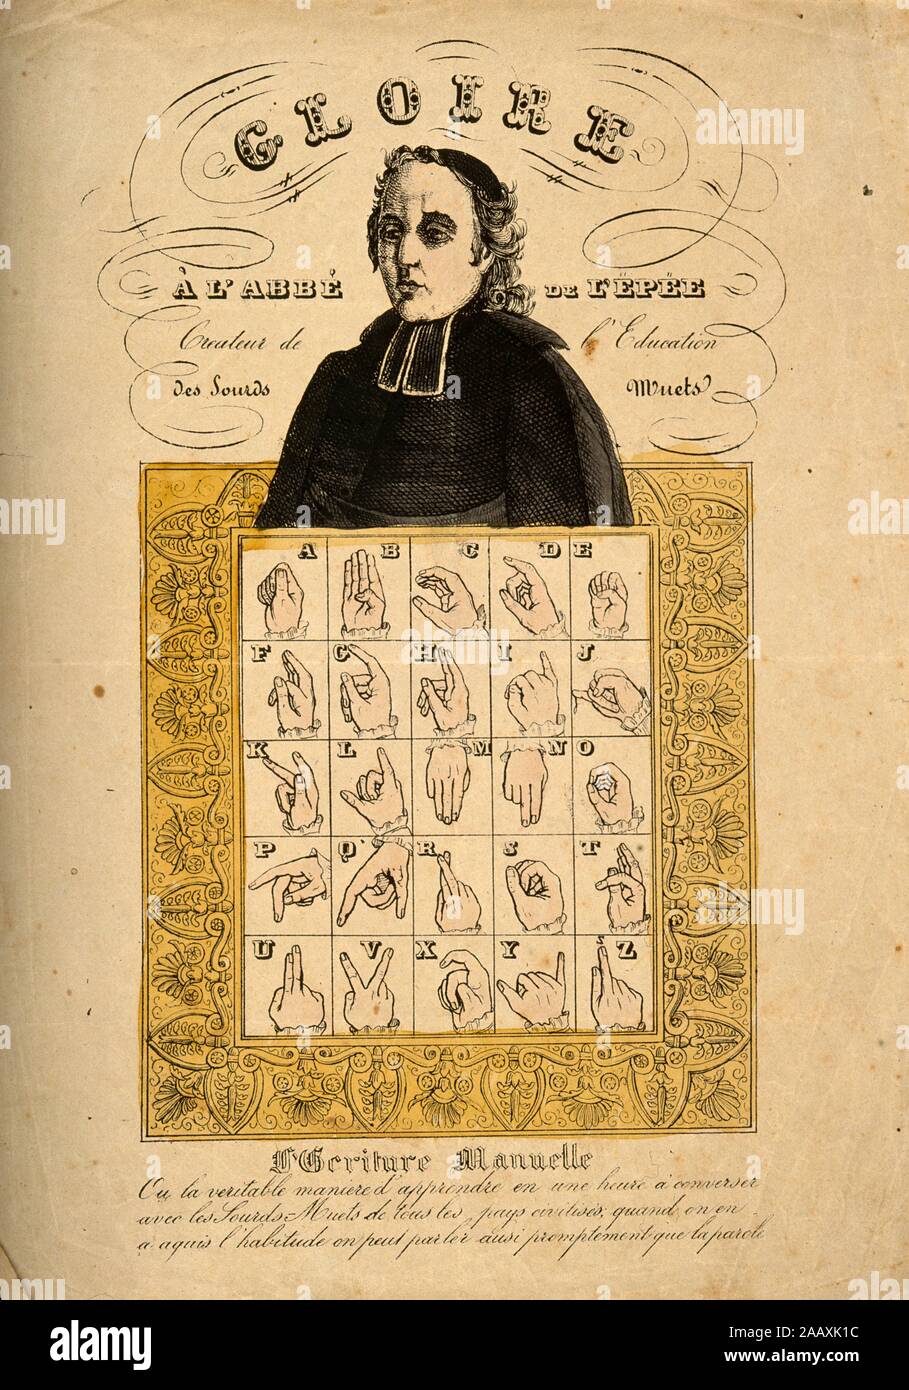 GLOIRE
À L'ABBÉ DE L'ËPËE
Createur de l'Education
des Sourds Muets
A B C D E
F G H I J
K L M N O
P Q R S T
U V X Y Z
L'Ecriture Manuelle
Ou la veritable maniere d'apprendre en une heure à converser
avec les Sourds=Muets de tous les pays civilisés; quand on en
a aquis l'habitude on peut parler ausi promptement que la parole
alamy
Image ID: 2AAXK1C
www.alamy.com